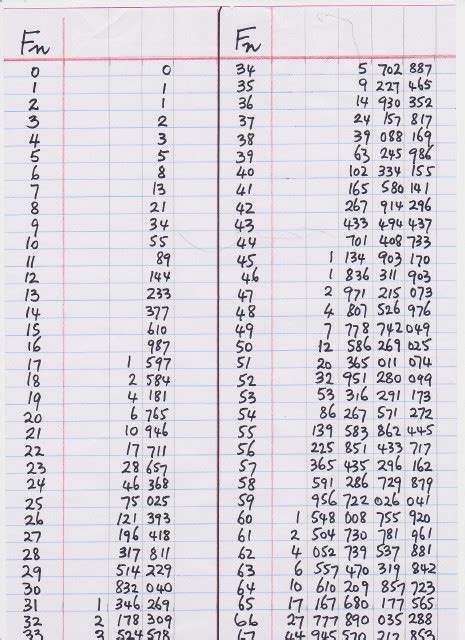 Fn
0 0
1 1
2 1
3 2
4 3
5 5
6 8
7 13
8 21
9 34
10 55
11 89
12 144
13 233
14 377
15 610
16 987
17 1 597
18 2 584
19 4 181
20 6 765
21 10 946
22 17 711
23 28 657
24 46 368
25 75 025
26 121 393
27 196 418
28 317 811
29 514 229
30 832 040
31 1 346 269
32 2 178 309
33 3 524 578
Fn
34 5 702 887
35 9 227 465
36 14 930 352
37 24 157 817
38 39 088 169
39 63 245 986
40 102 334 155
41 165 580 141
42 267 914 296
43 433 494 437
44 701 408 733
45 1 134 903 170
46 1 836 311 903
47 2 971 215 073
48 4 807 526 976
49 7 778 742 049
50 12 586 269 025
51 20 365 011 074
52 32 951 280 099
53 53 316 291 173
54 86 267 571 272
55 139 583 862 445
56 225 851 433 717
57 365 435 296 162
58 591 286 729 879
59 956 722 026 041
60 1 548 008 755 920
61 2 504 730 781 961
62 4 052 739 537 881
63 6 557 470 319 842
64 10 610 209 857 723
65 17 167 680 177 565
66 27 777 890 035 288
67 44 945 570 212 853